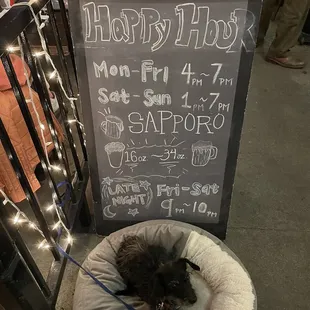 Happy Hour
Mon-Fri 4PM~7PM
Sat-Sun 1PM~7PM
SAPPORO
16oz ~ 34oz
LATE NIGHT Fri-Sat
9PM~10PM